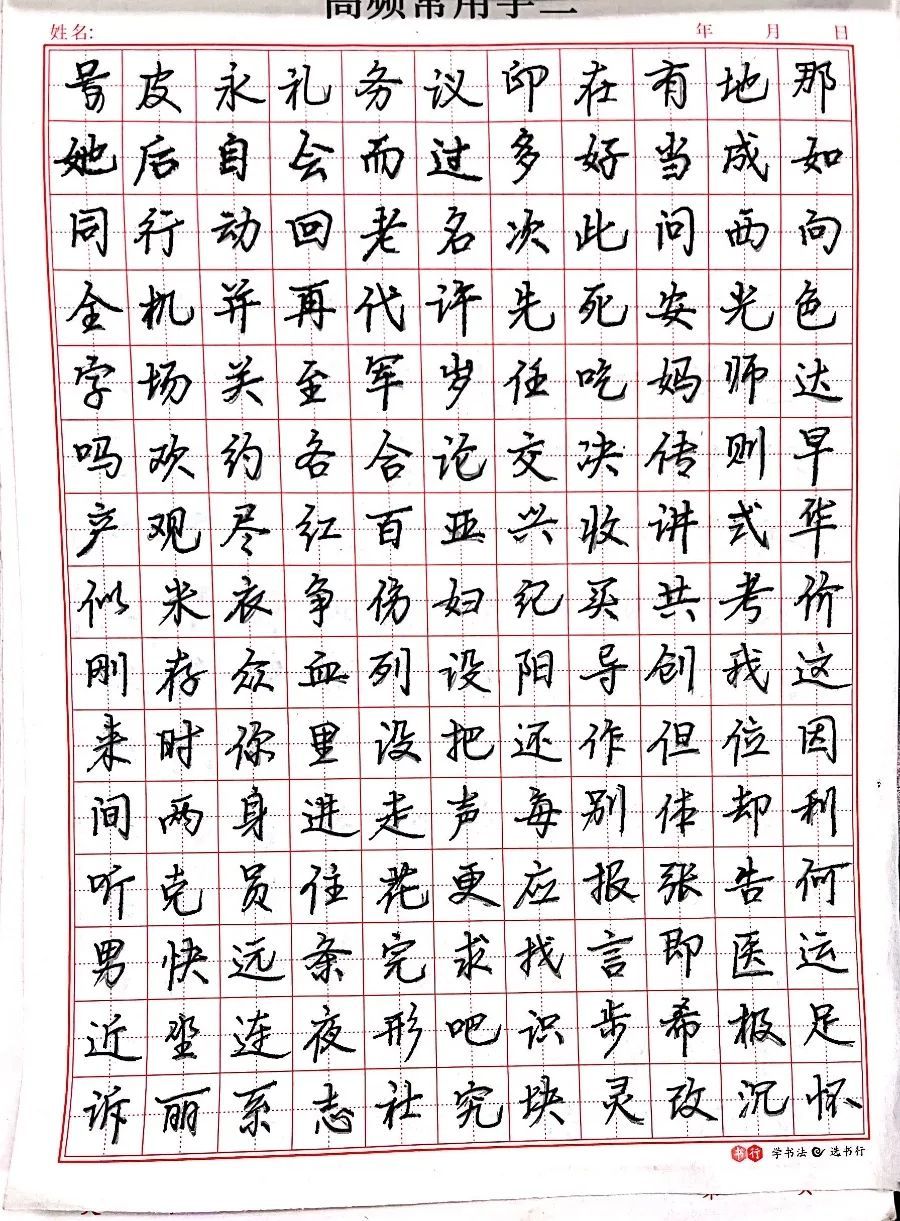 高频常用字二
姓名: 年 月 日
号皮永礼务议印在有地那
她后自会而过多好当成如
同行动回老名次此问西向
全机并再代许先死安光色
字场关至军岁任吃妈师达
吗欢约各合论交决传则早
产观尽红百亚兴收讲式华
似米衣争傍妇纪买共考价
刚存众血列设阳导创我这
来时你里没把还作但位因
间两身进走声每别体却利
听克员住花更应报张告何
男快远条完求找言即医运
近坐连夜形吧识步希极足
诉丽系志社究块灵改沉怀
书行 学书法 选书行